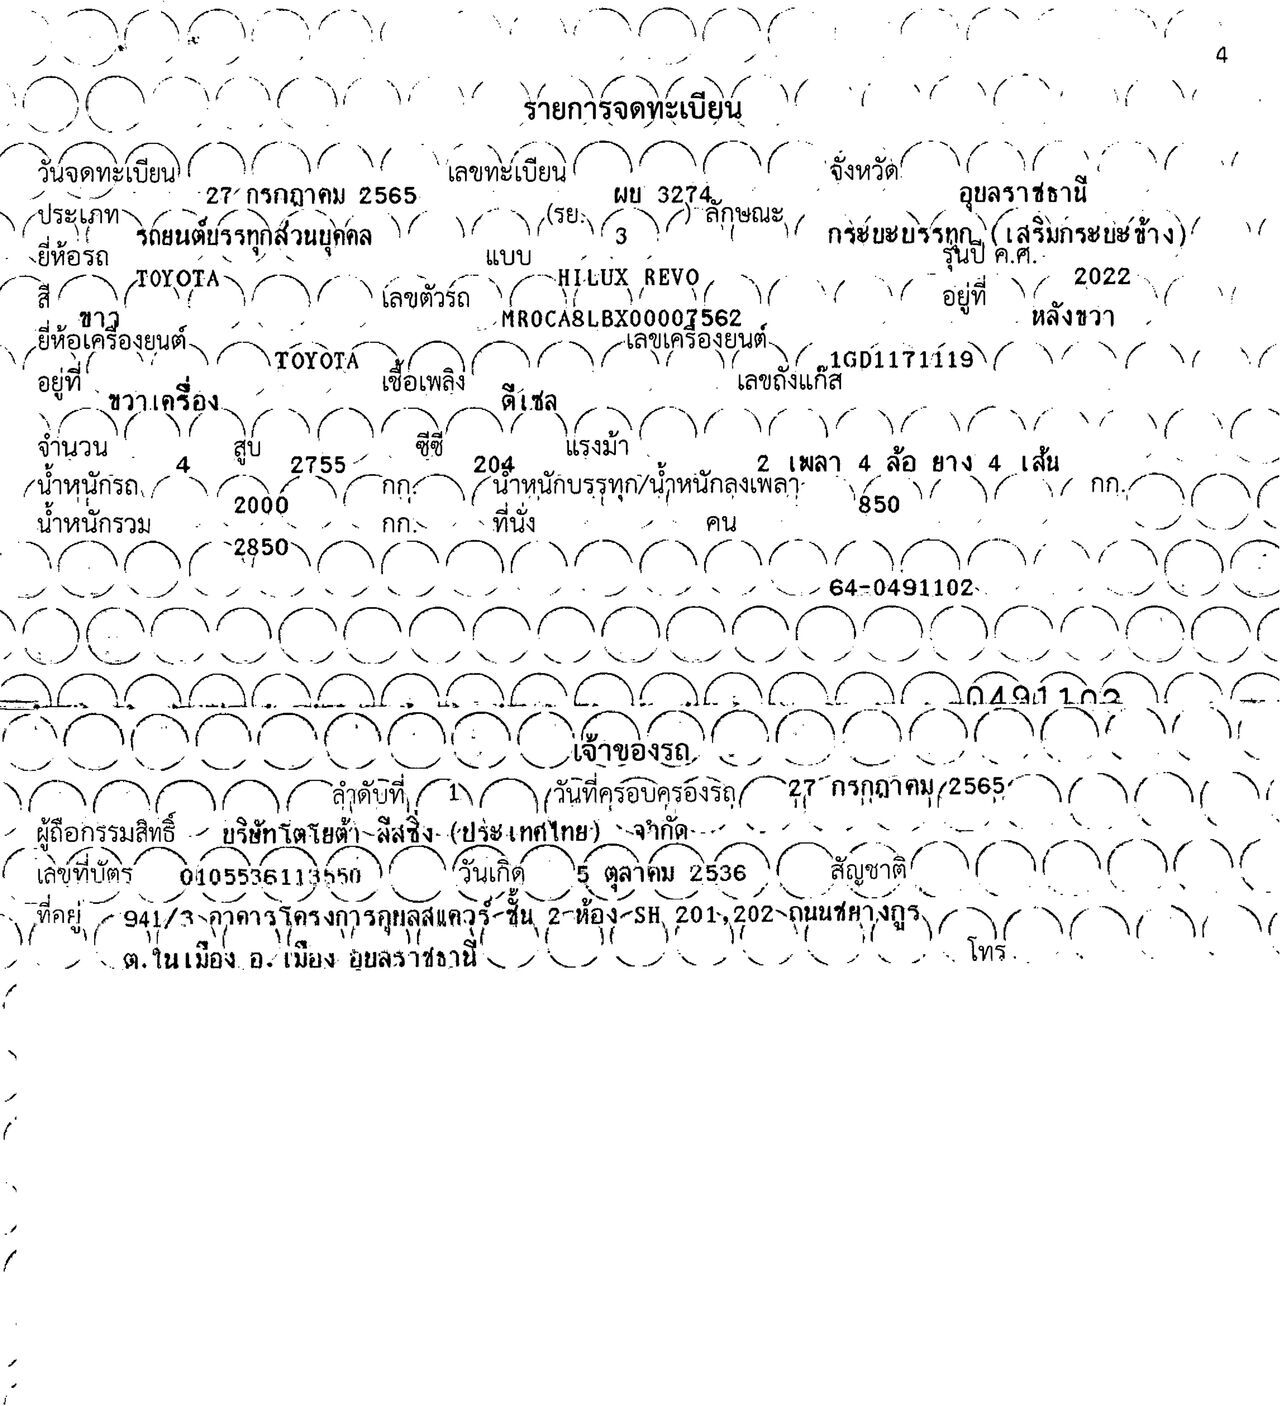 4
รายการจดทะเบียน
วันจดทะเบียน 27 กรกฎาคม 2565 เลขทะเบียน ผบ 3274 จังหวัด อุบลราชธานี
ประเภท รถยนต์บรรทุกส่วนบุคคล (รย. 3 ) ลักษณะ กระบะบรรทุก (เสริมกระบะข้าง)
ยี่ห้อรถ TOYOTA แบบ HILUX REVO รุ่นปี ค.ศ. 2022
สี ขาว เลขตัวรถ MR0CA8LBX00007562 อยู่ที่ หลังขวา
ยี่ห้อเครื่องยนต์ TOYOTA เลขเครื่องยนต์ 1GD1171119
อยู่ที่ ขวาเครื่อง เชื้อเพลิง ดีเซล เลขถังแก๊ส
จำนวน 4 สูบ 2755 ซีซี 204 แรงม้า 2 เพลา 4 ล้อ ยาง 4 เส้น
น้ำหนักรถ 2000 กก. น้ำหนักบรรทุก/น้ำหนักลงเพลา 850 กก.
น้ำหนักรวม 2850 กก. ที่นั่ง คน
64-0491102
0491102
เจ้าของรถ
ลำดับที่ 1 วันที่ครอบครองรถ 27 กรกฎาคม 2565
ผู้ถือกรรมสิทธิ์ บริษัทโตโยต้า ลีสซิ่ง (ประเทศไทย) จำกัด
เลขที่บัตร 0105536113550 วันเกิด 5 ตุลาคม 2536 สัญชาติ
ที่อยู่ 941/3 อาคารโครงการอุบลสแควร์ ชั้น 2 ห้อง SH 201,202 ถนนชยางกูร
ต.ในเมือง อ.เมือง อุบลราชธานี โทร